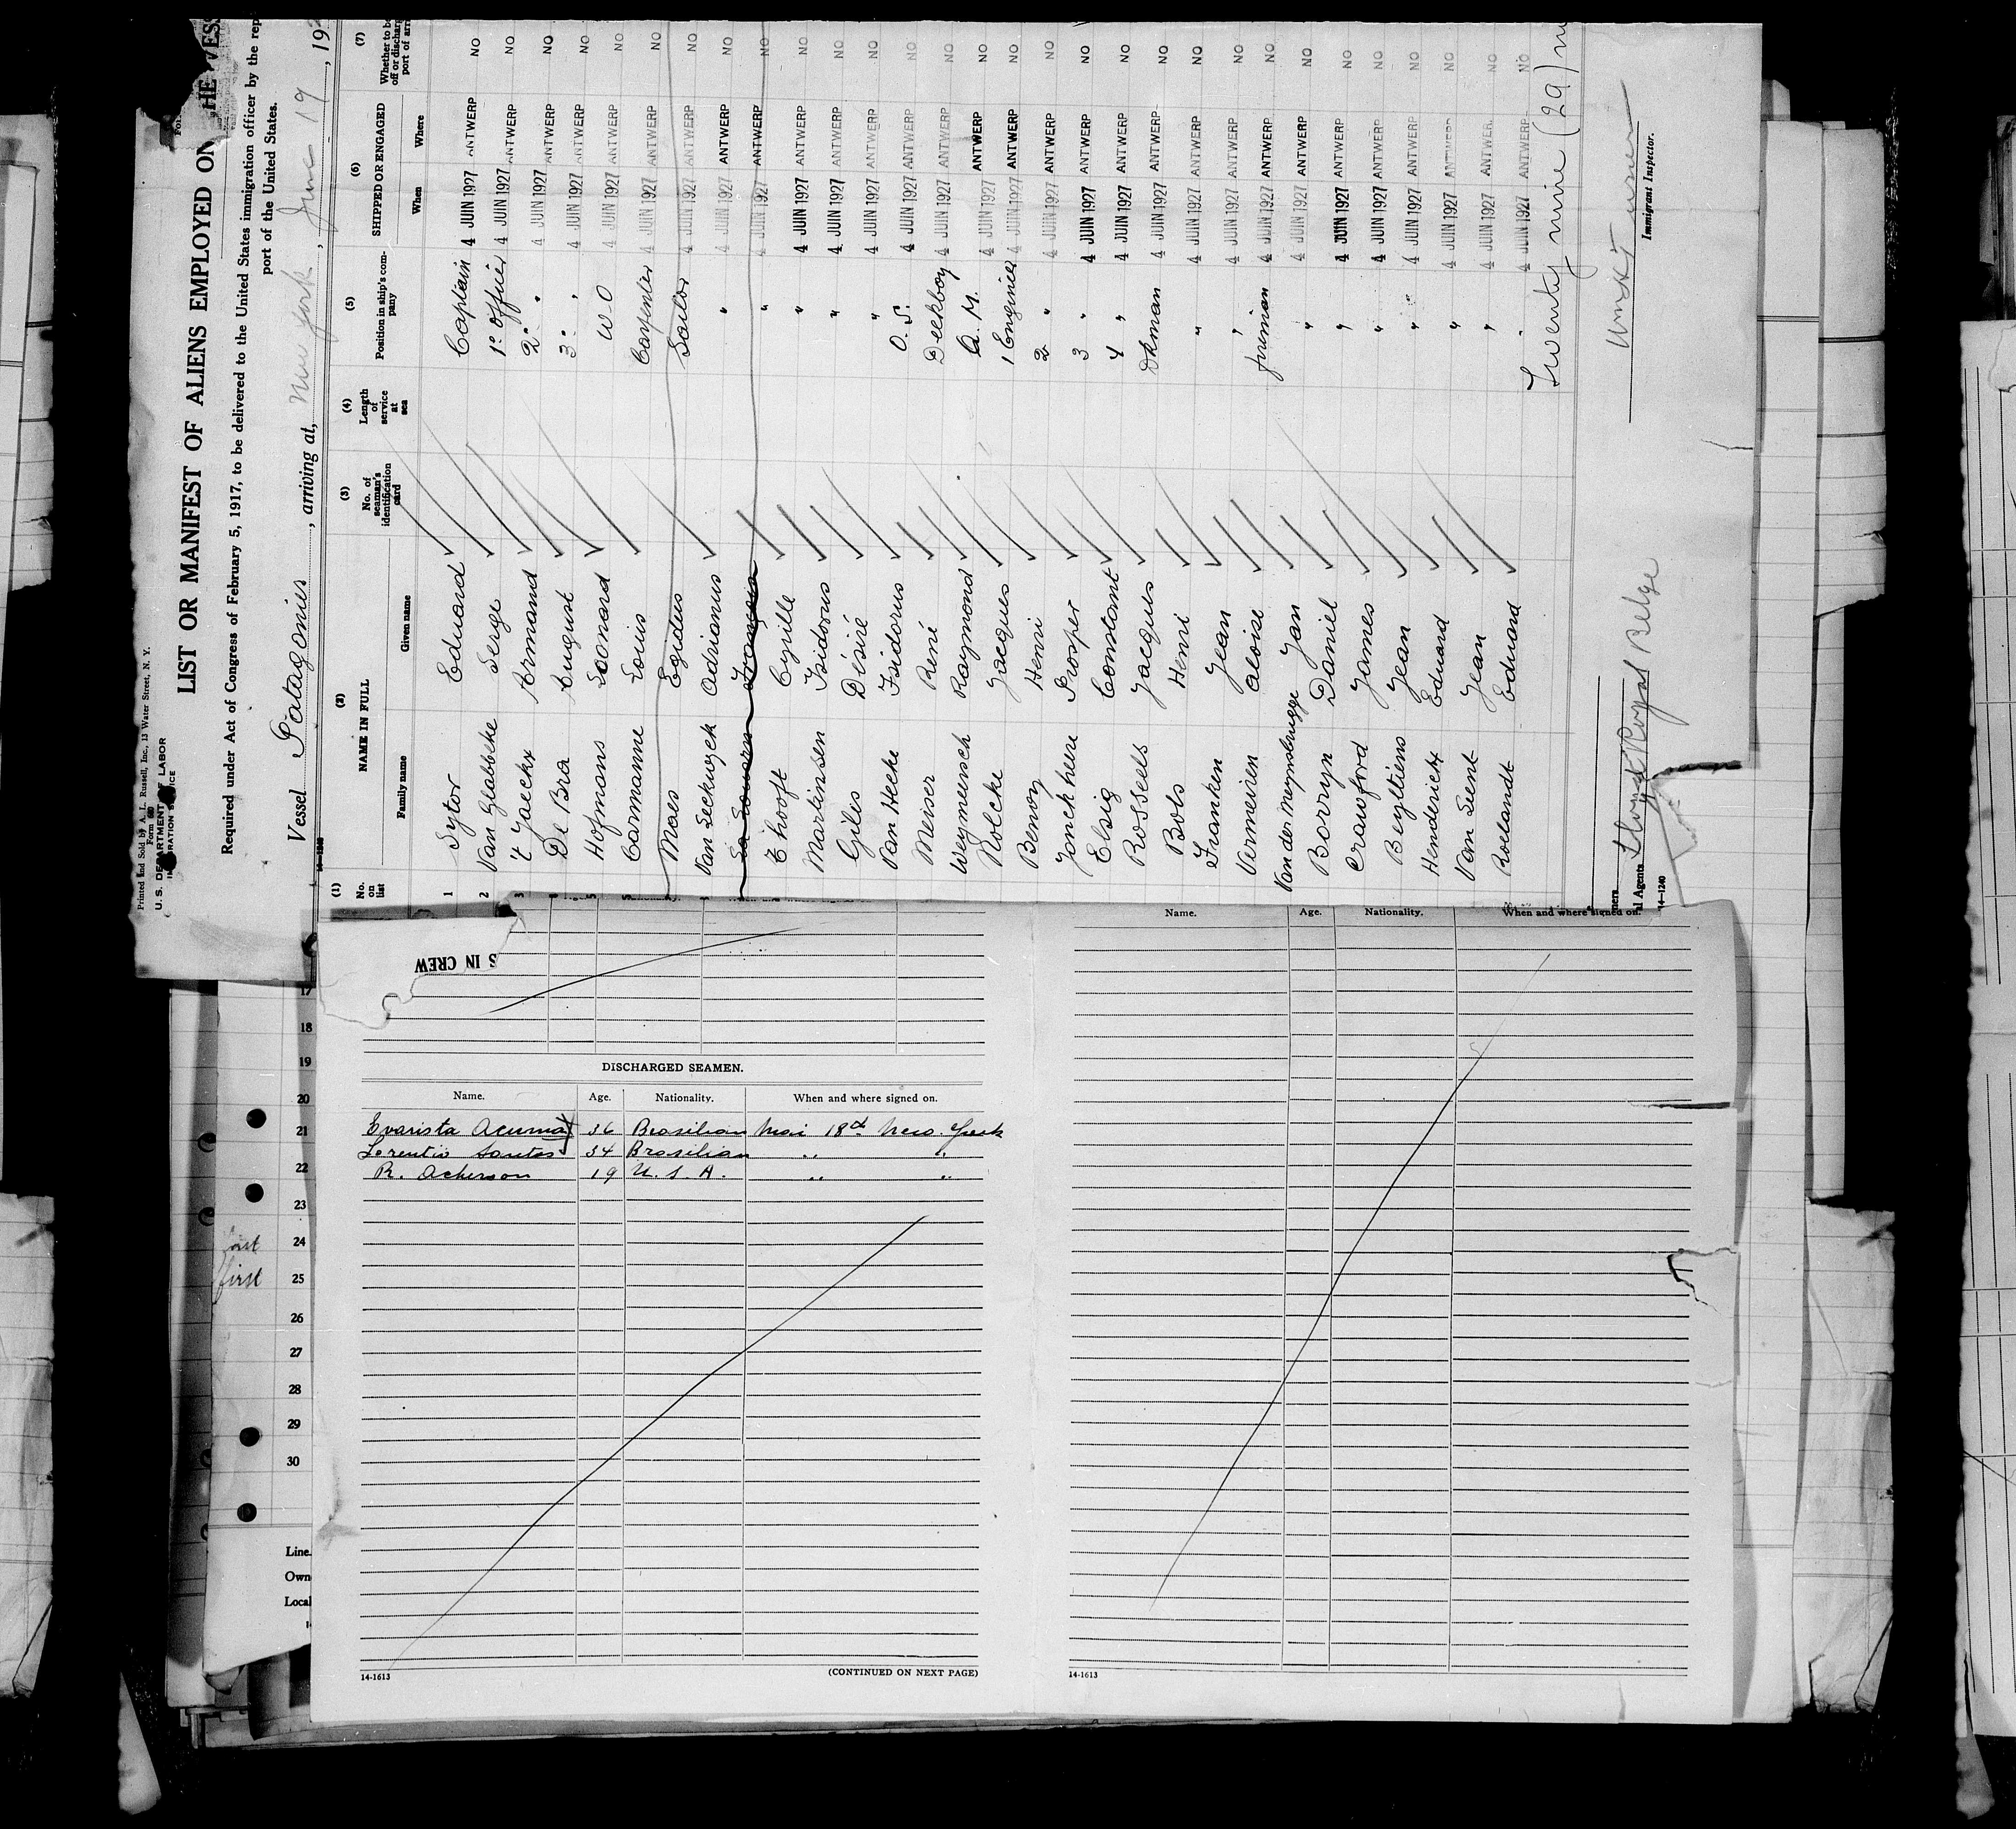 Printed and Sold by A. L. Russell, Inc., 13 Water Street, N. Y.
Form 680
U. S. DEPARTMENT OF LABOR
IMMIGRATION SERVICE
LIST OR MANIFEST OF ALIENS EMPLOYED ON THE VES
Required under Act of Congress of February 5, 1917, to be delivered to the United States immigration officer by the rep
port of the United States.
Vessel Patagonier, arriving at, New York, June 19, 192
(1) (2) (3) (4) (5) (6) (7)
No. on list NAME IN FULL No. of seaman's identification card Length of service at sea Position in ship's company SHIPPED OR ENGAGED Whether to be
off or discharg
port of arri
Family name Given name When Where
1 Sytor Eduard Captain 4 JUIN 1927 ANTWERP NO
2 Van Glabbeke Serge 1° officier 4 JUIN 1927 ANTWERP NO
3 't Jaeckx Armand 2° " 4 JUIN 1927 ANTWERP NO
De Bra August 3° " 4 JUIN 1927 ANTWERP NO
5 Hofmans Leonard W.O 4 JUIN 1927 ANTWERP NO
Carmanne Louis Carpentier 4 JUIN 1927 ANTWERP NO
Maes Egidus Sailor 4 JUIN 1927 ANTWERP NO
Van Leckwyck Adrianus " 4 JUIN 1927 ANTWERP NO
François " 4 JUIN 1927 ANTWERP NO
T'hooft Cyrille " 4 JUIN 1927 ANTWERP NO
Martinsen Isidorus " 4 JUIN 1927 ANTWERP NO
Gilis Désiré " 4 JUIN 1927 ANTWERP NO
Van Hecke Isidorus O. S. 4 JUIN 1927 ANTWERP NO
Meiser René Deckboy 4 JUIN 1927 ANTWERP NO
Weymeersch Raymond A. M. 4 JUIN 1927 ANTWERP NO
Nolcke Jacques 1 Engineer 4 JUIN 1927 ANTWERP NO
Benoy Henri 2 " 4 JUIN 1927 ANTWERP NO
Jonckheere Prosper 3 " 4 JUIN 1927 ANTWERP NO
Elsig Constant 4 " 4 JUIN 1927 ANTWERP NO
Rosseels Jacques Dkman 4 JUIN 1927 ANTWERP NO
Bols Henri " 4 JUIN 1927 ANTWERP NO
Franken Jean " 4 JUIN 1927 ANTWERP NO
Vermeiren Aloise fireman 4 JUIN 1927 ANTWERP NO
Van der Meynsbrugge Jan " 4 JUIN 1927 ANTWERP NO
Borryn Daniel " 4 JUIN 1927 ANTWERP NO
Crawford James " 4 JUIN 1927 ANTWERP NO
Beyltiens Jean " 4 JUIN 1927 ANTWERP NO
Henderickx Eduard " 4 JUIN 1927 ANTWERP NO
Van Lent Jean " 4 JUIN 1927 ANTWER NO
Roelandt Eduard 4 JUIN 1927 ANTWERP NO
Twenty nine (29)
Immigrant Inspector.
ners
al Agents Lloyd Royal Belge
14—1240
S IN CREW
17
18
19
20
21
22
23
24
25
26
27
28
29
30
last
first
Line
Own
Local
DISCHARGED SEAMEN.
Name. Age. Nationality. When and where signed on.
Evarista Acuma 36 Brasilian Mai 18th New-York
Lorentio Santos 34 Brasilian " "
R. Ackerson 19 U. S. A. " "
14-1613 (CONTINUED ON NEXT PAGE)
Name. Age. Nationality. When and where signed on.
14-1613